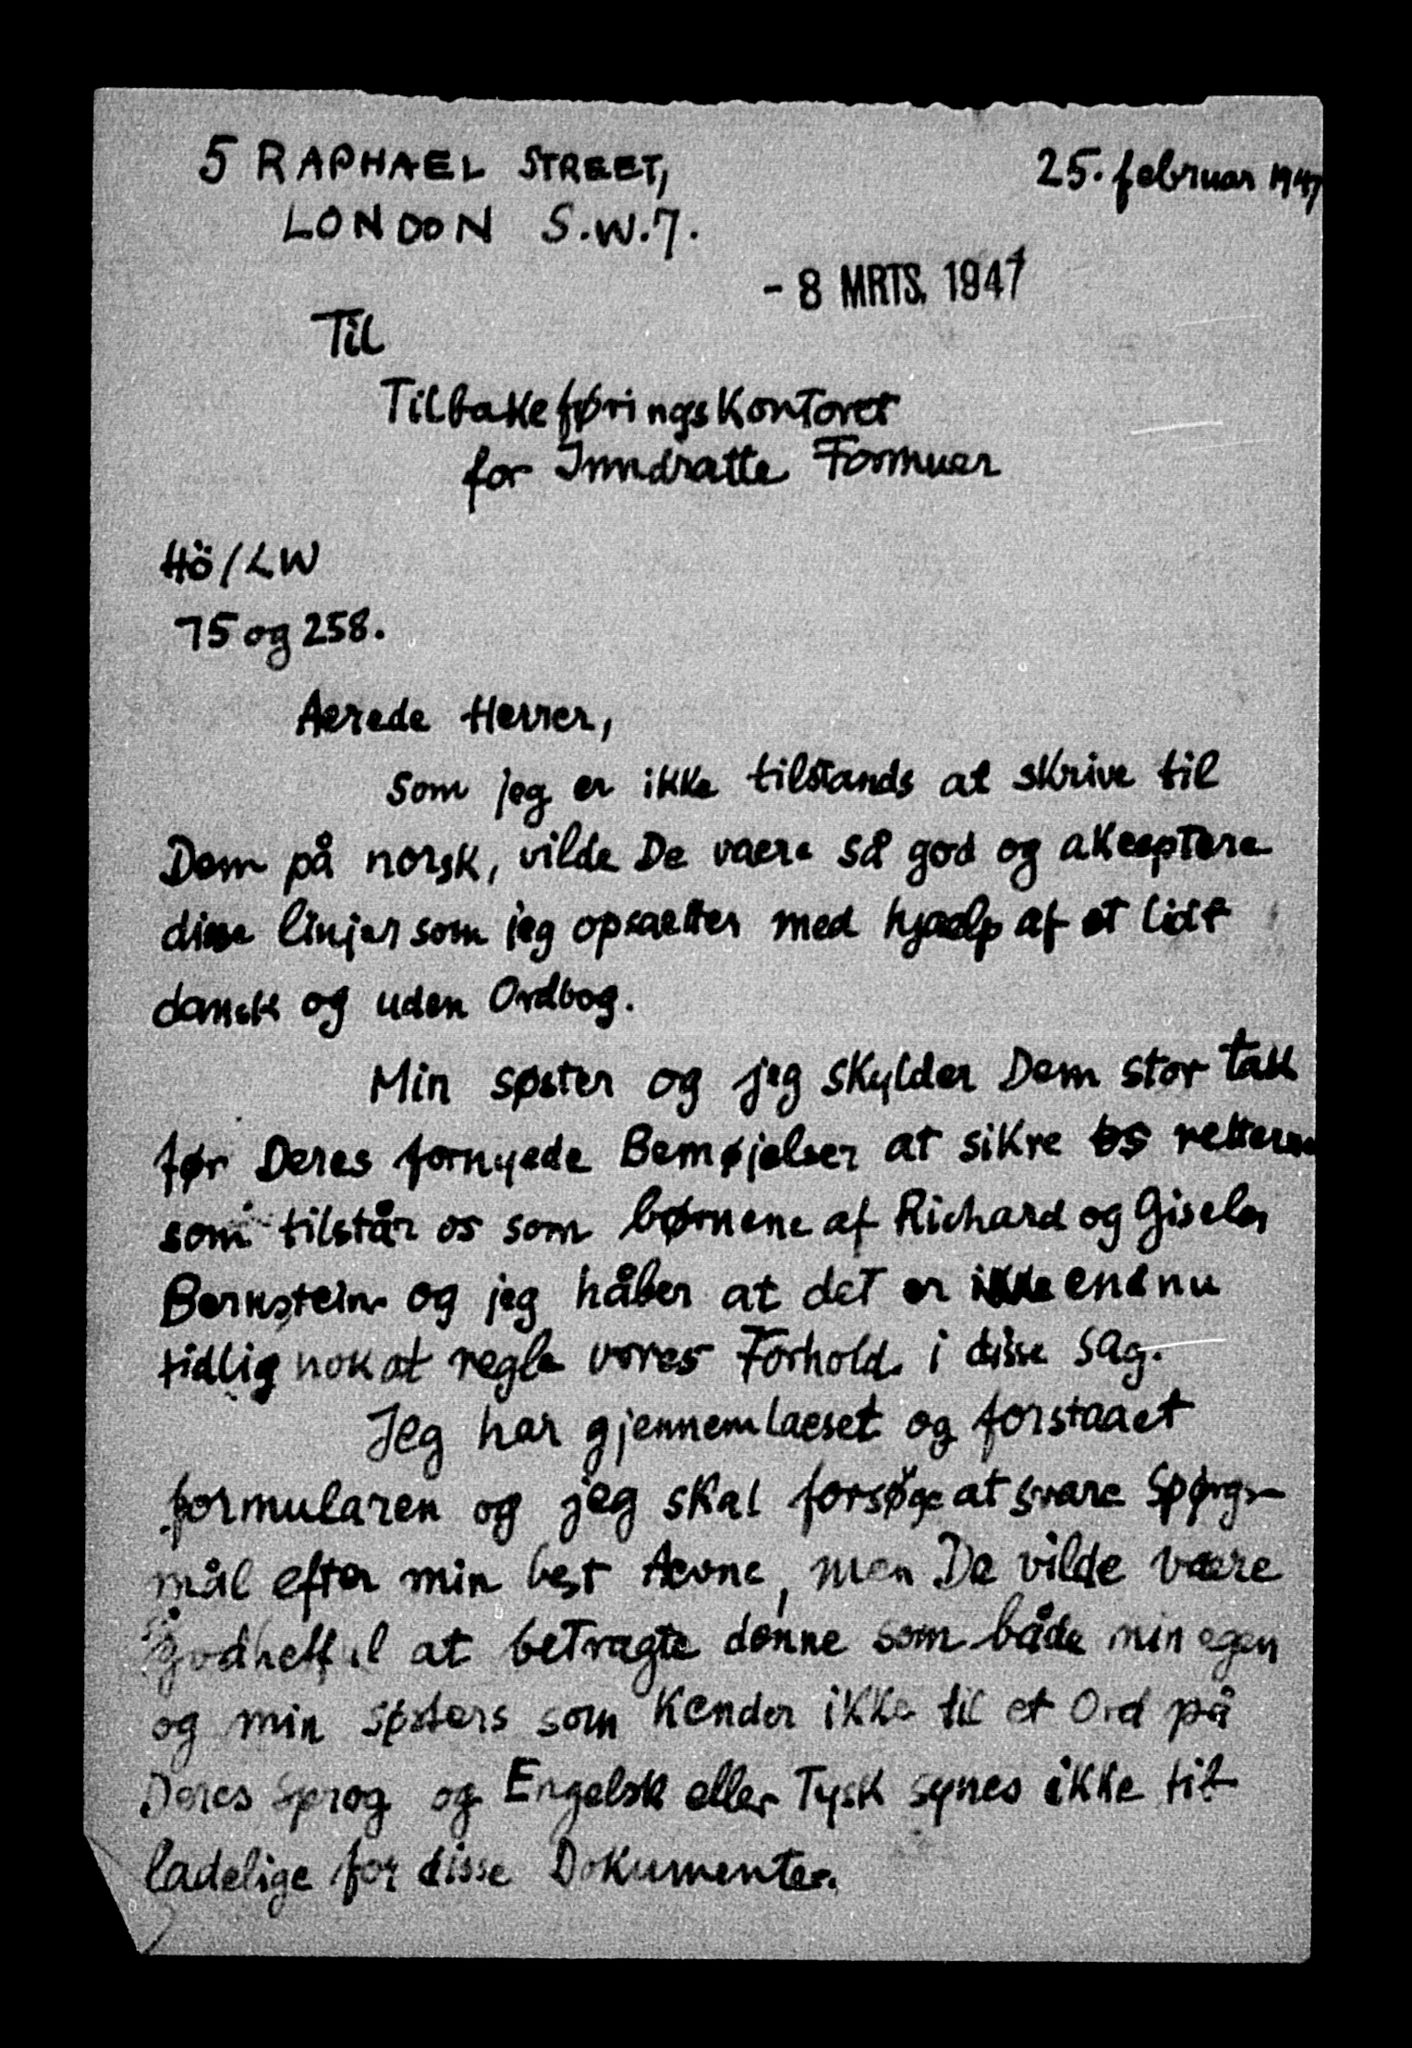 5 RAPHAEL STREET,
25. februar 1947
LONDON S.W.7.
- 8 MRTS. 1947
Til
Tilbakeføringskontoret
for Inndratte Formuer
Hö/LW
75 og 258.
Aerede Herrer,
Som jeg er ikke tilstands at skrive til
Dem på norsk, vilde De vaere så god og akceptere
disse linjer som jeg opsaetter med hjaelp af et lidt
dansk og uden Ordbog.
Min søster og jeg skylder Dem stor tak
før Deres fornyede Bemøjelser at sikre os retterne
som tilstår os som børnene af Richard og Gisela
Bernstein og jeg håber at det er ikke endnu
tidlig nok at regle vores Forhold i disse sag.
Jeg har gjennemlaeset og forstaaet
formularen og jeg skal forsøge at svare Spørgs-
mål efter min best Aevne, men De vilde vaere
så godhetful at betragte denne som både min egen
og min søsters som kender ikke til et Ord på
Deres Sprog og Engelsk eller Tysk synes ikke til-
ladelige for disse Dokumenter.